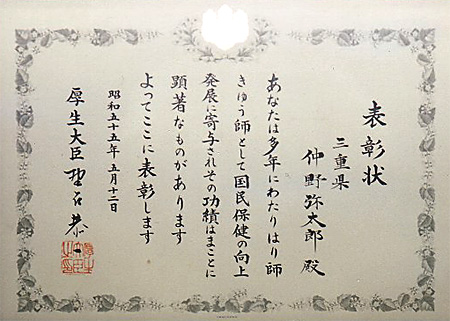 表彰状
三重県
仲野弥太郎 殿
あなたは多年にわたりはり師
きゆう師として国民保健の向上
発展に寄与されその功績はまことに
顕著なものがあります
よってここに表彰します
昭和五十五年五月十二日
厚生大臣 野呂恭一